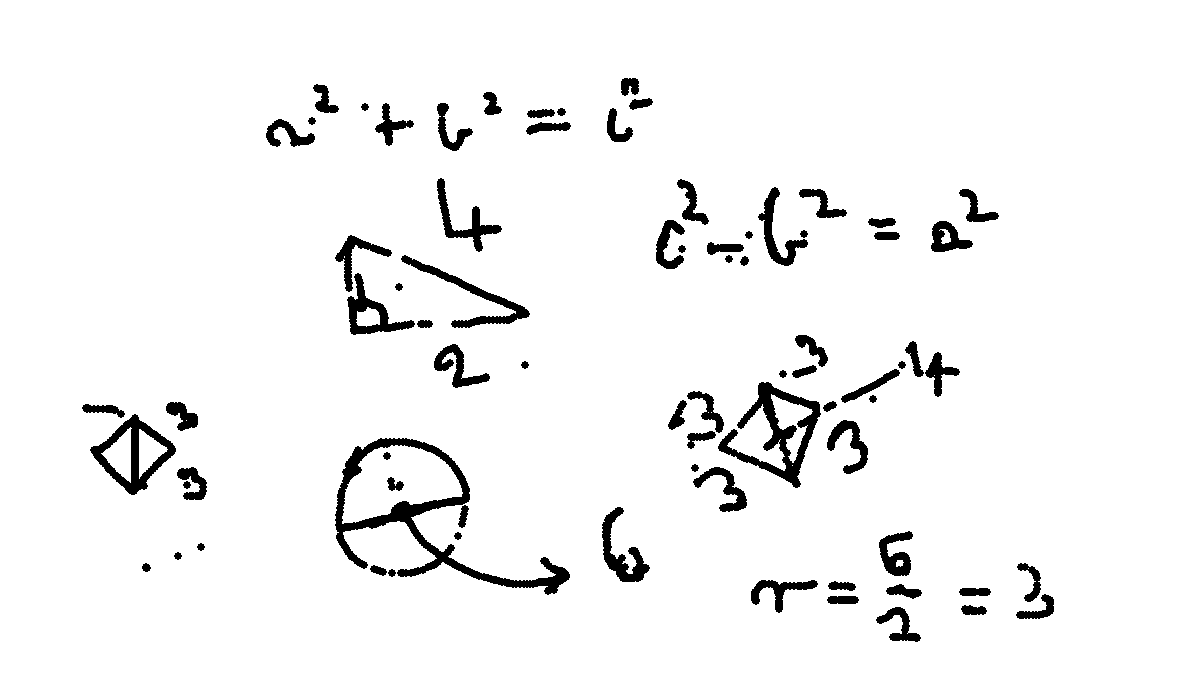 a² + b² = c²
4
c² - b² = a²
b
2
3
4
3
3
3
3
3
6
r = 6/2 = 3